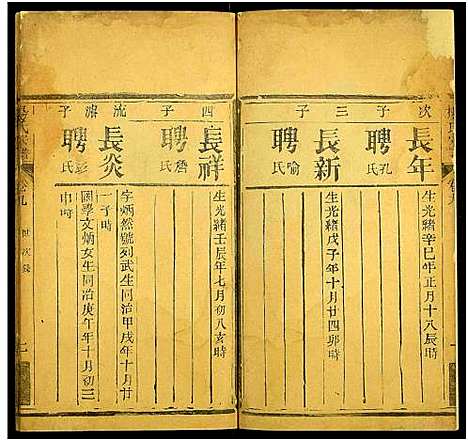 次子
長年
聘孔氏
生光緒辛巳年正月十八辰時
三子
長新
聘喻氏
生光緒戊子年十月廿四卯時
四子
長祥
聘詹氏
生光緒壬辰年七月初八亥時
流濬子
長炎
聘彭氏
字炳然號列武生同治甲戌年十月廿
一子時
國學文炳女生同治庚午年十月初三
申時
楊氏宗譜
卷九